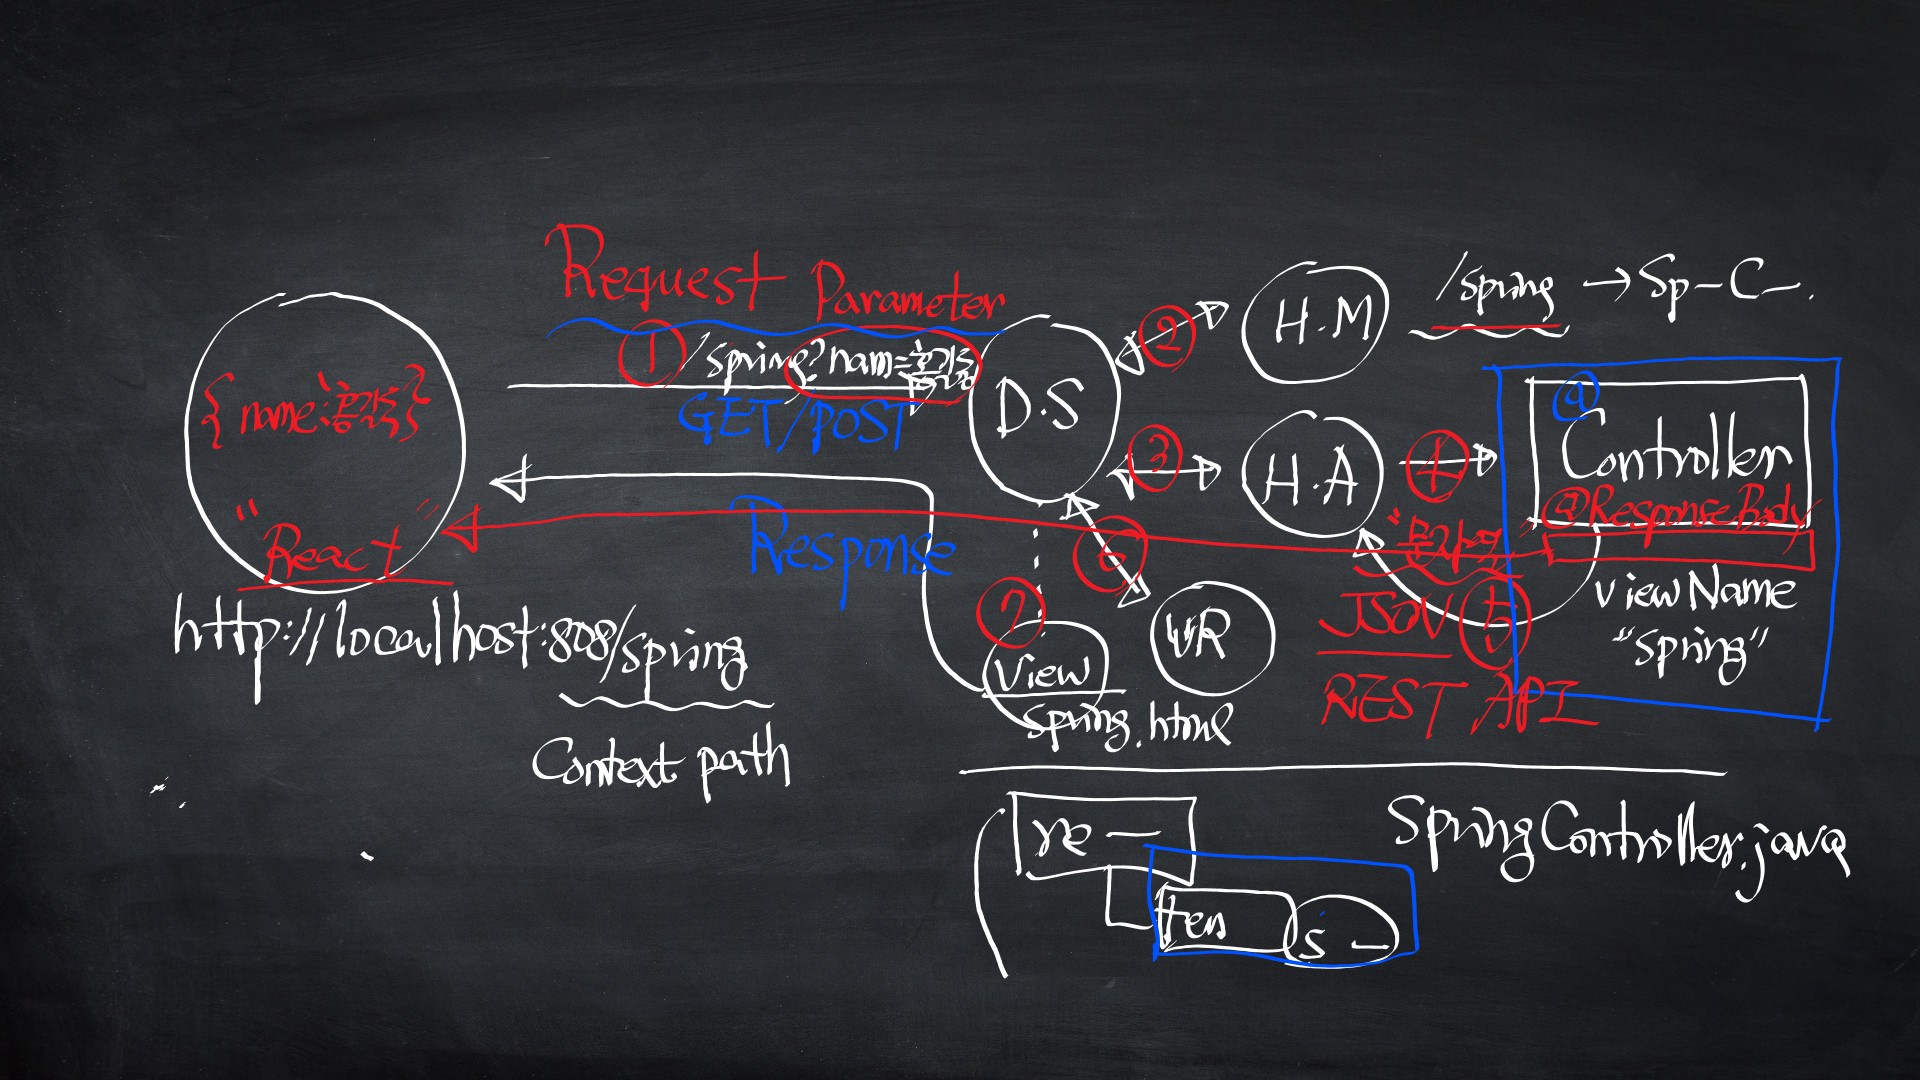 Request Parameter
① /spring?nam=홍길동
GET/POST
{ name:홍길동 }
"React"
http://localhost:808/spring
Context path
Response
D.S
②
H.M
/spring → Sp-C-.
③
H.A
④
@
Controller
@ResponseBody
"문자열"
JSON
⑤
REST API
viewName
"spring"
⑥
VR
⑦
View
spring.html
SpringController.java
re —
tem
s —